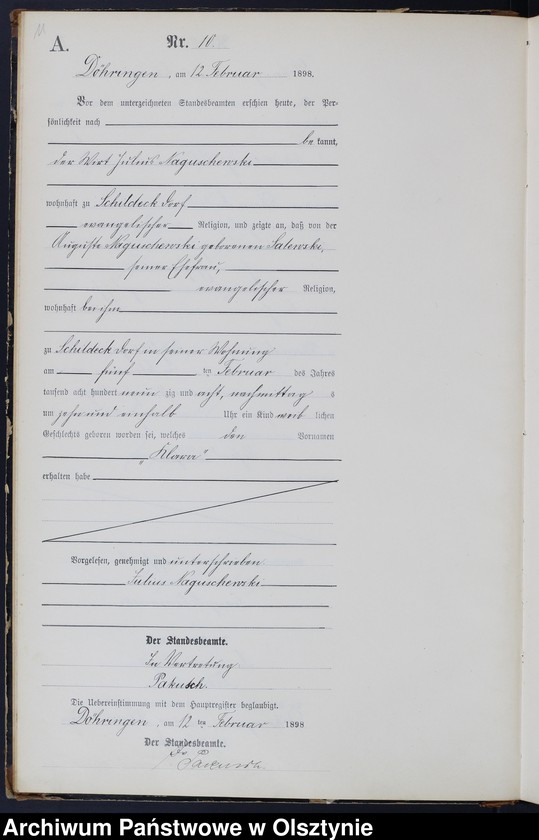 11
A.
Nr. 10.
Döhringen, am 12 Februar 1898.
Vor dem unterzeichneten Standesbeamten erschien heute, der Per-
sönlichkeit nach
be kannt,
der Wirt Julius Naguschewski
wohnhaft zu Schildeck Dorf
evangelischer Religion, und zeigte an, daß von der
Auguste Naguschewski geborenen Salewski,
seiner Ehefrau,
evangelischer Religion,
wohnhaft bei ihm
zu Schildeck Dorf in seiner Wohnung
am fünf ten Februar des Jahres
tausend acht hundert neun zig und acht, nachmittag s
um zehn und einhalb Uhr ein Kind weib lichen
Geschlechts geboren worden sei, welches den Vornamen
„Klara"
erhalten habe
Vorgelesen, genehmigt und unterschrieben
Julius Naguschewski
Der Standesbeamte.
In Vertretung
Pakusch.
Die Uebereinstimmung mit dem Hauptregister beglaubigt.
Döhringen, am 12 ten Februar 1898
Der Standesbeamte.
Pakusch
Archiwum Państwowe w Olsztynie